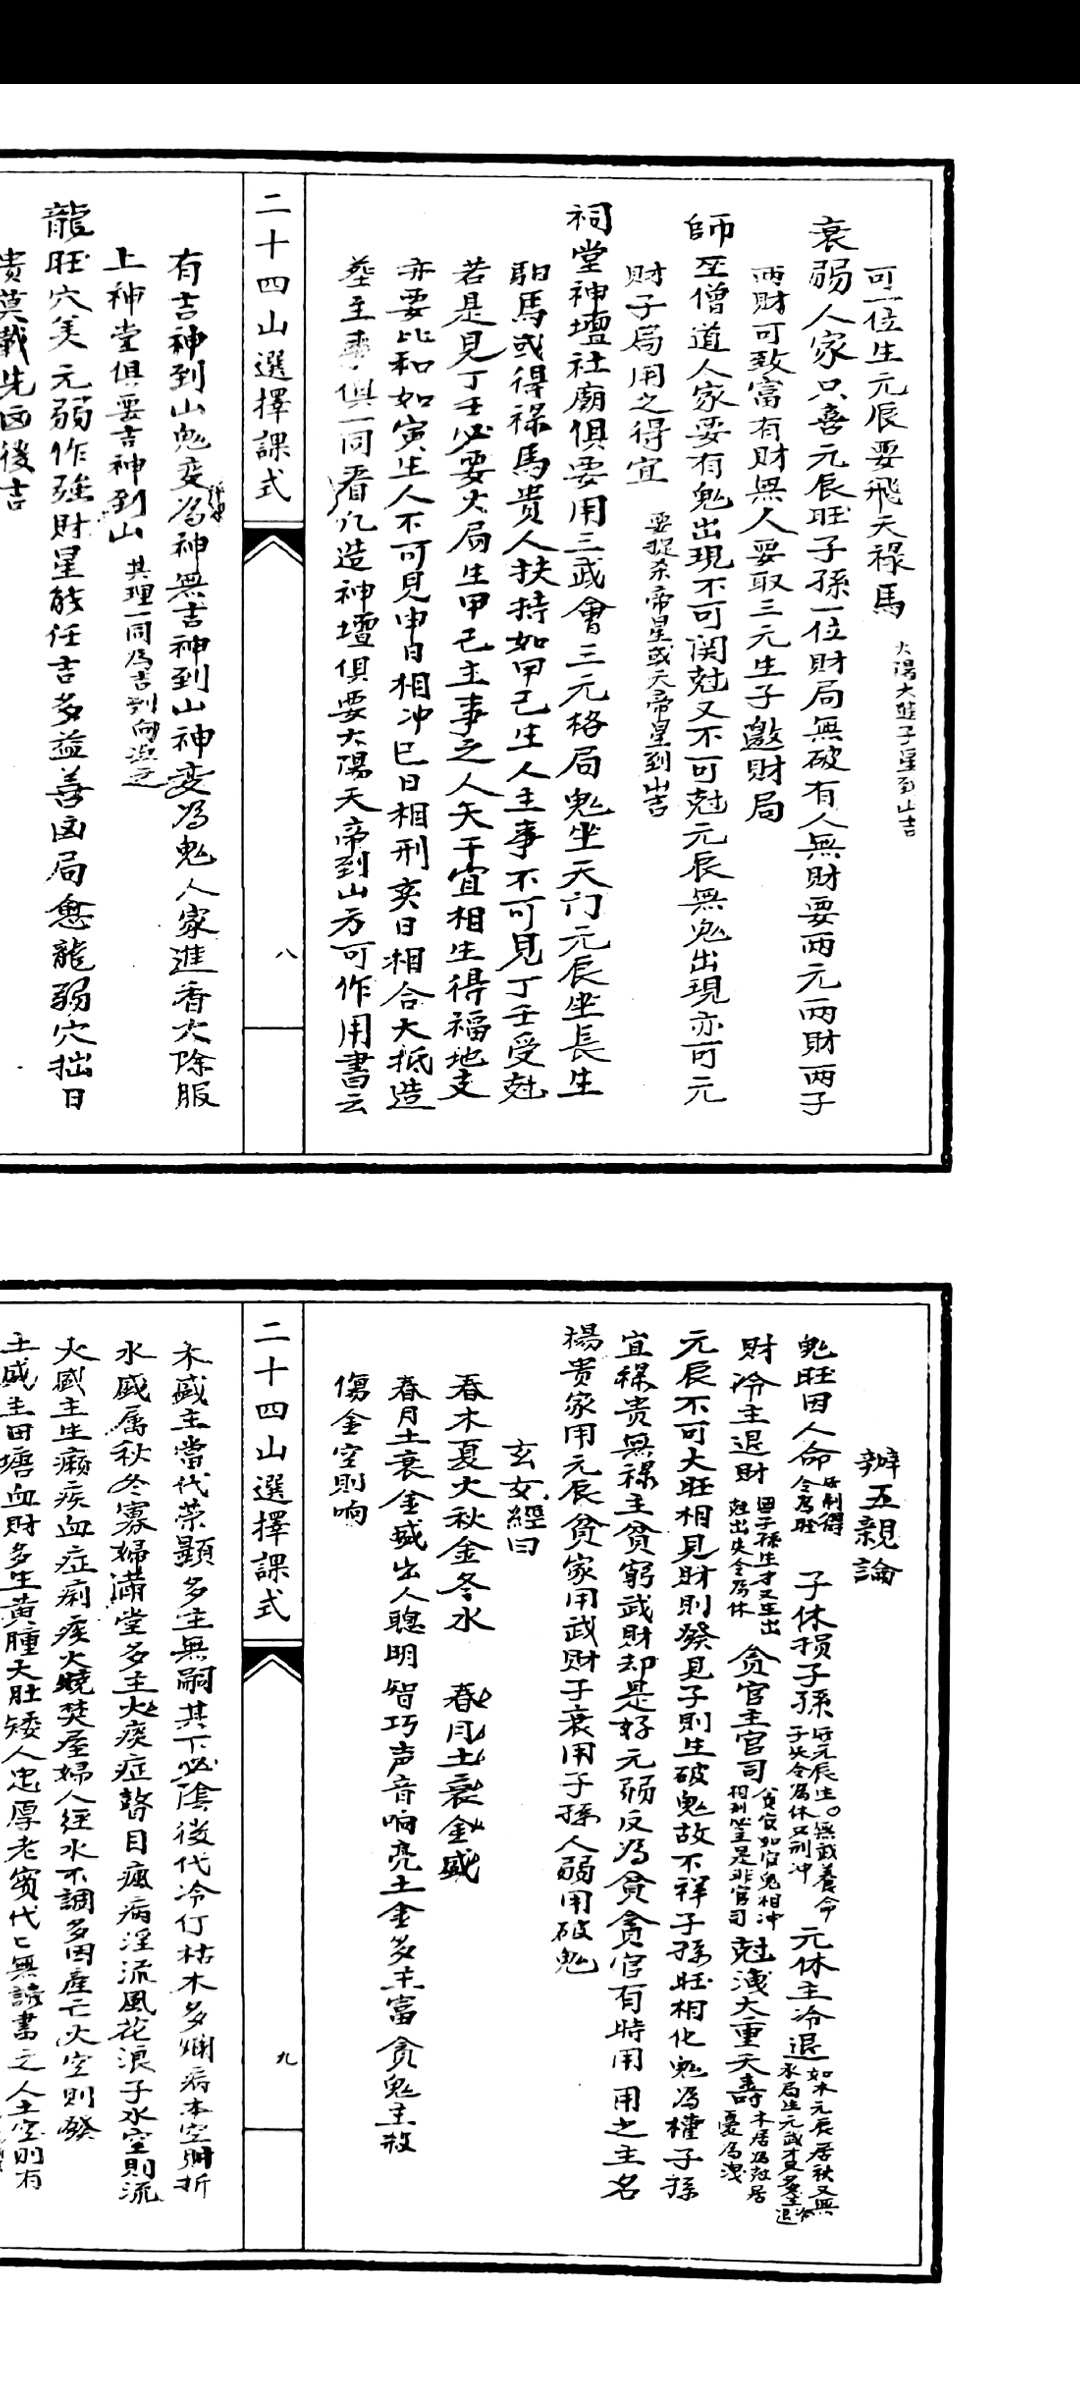 可一位生元辰要飛天祿馬 太陽大進子星到山吉
衰弱人家只喜元辰旺子孫一位財局無破有人無財要兩元兩財兩子
兩財可致富有財無人要取三元生子邀財局
師巫僧道人家要有鬼出現不可関尅又不可尅元辰無鬼出現亦可元
財子局用之得宜 要捉杀帝星或天帝星到山吉
祠堂神壇社廟俱要用三武會三元格局鬼坐天门元辰坐長生
馹馬或得祿馬貴人扶持如甲己生人主事不可見丁壬受尅
若是見丁壬必要火局生甲己主事之人天干宜相生得福地支
亦要比和如寅生人不可見申日相冲巳日相刑亥日相合大抵造
塟主事俱一同看凡造神壇俱要太陽天帝到山方可作用書云
二十四山選擇課式
八
有吉神到山鬼变為神無吉神到山神变為鬼人家進香火除服
上神堂俱要吉神到山 其理一同為吉判向湏之
龍旺穴美元弱作強財星能任吉多益善凶局愈龍弱穴拙日
貴莫載先凶後吉
辦五親論
鬼旺因人命 令為旺 子休損子孫 旺元辰生。無武養令子失令為休又刑冲 元休主冷退 如木元辰居秋又無水局生元武才多
財冷主退財 因子孫生才又生出尅出失令為休 貪官主官司 貪官如官鬼相冲相刑竺是非官司 尅洩大重夭壽 木居為尅居憂為洩
元辰不可大旺相見財則發見子則生破鬼故不祥子孫旺相化鬼為權子孫
宜祿貴無祿主貧窮武財却是好元弱反為貧貪官有時用 用之主名
揚貴家用元辰貧家用武財子衰用子孫人弱用破鬼
玄女經曰
春木夏火秋金冬水 春月土衰金盛
春月土衰金盛出人聰明智巧声音响亮土金多主富貪鬼主敗
傷金空則响
二十四山選擇課式
九
木盛主當代荣顯多主無嗣其下必陰後代冷仃枯木多爛病木空則折
水盛属秋冬寡婦滿堂多主火痰症瞽目瘋病淫流風花浪子水空則流
火盛主生癩疾血症痢疾火燒焚屋婦人經水不調多因產亡火空則發
土盛主田塘血財多生黃腫大肚矮人忠厚老實代匕無讀書之人土空則有